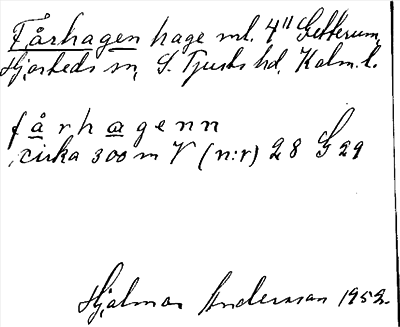 Fårhagen hage ml. 4" Getterum,
Hjorteds sn, S. Tjusts hd. Kalm. l.
fårhagenn
cirka 300 m V (n:r) 28 G 29
Hjalmar Andersson 1952.